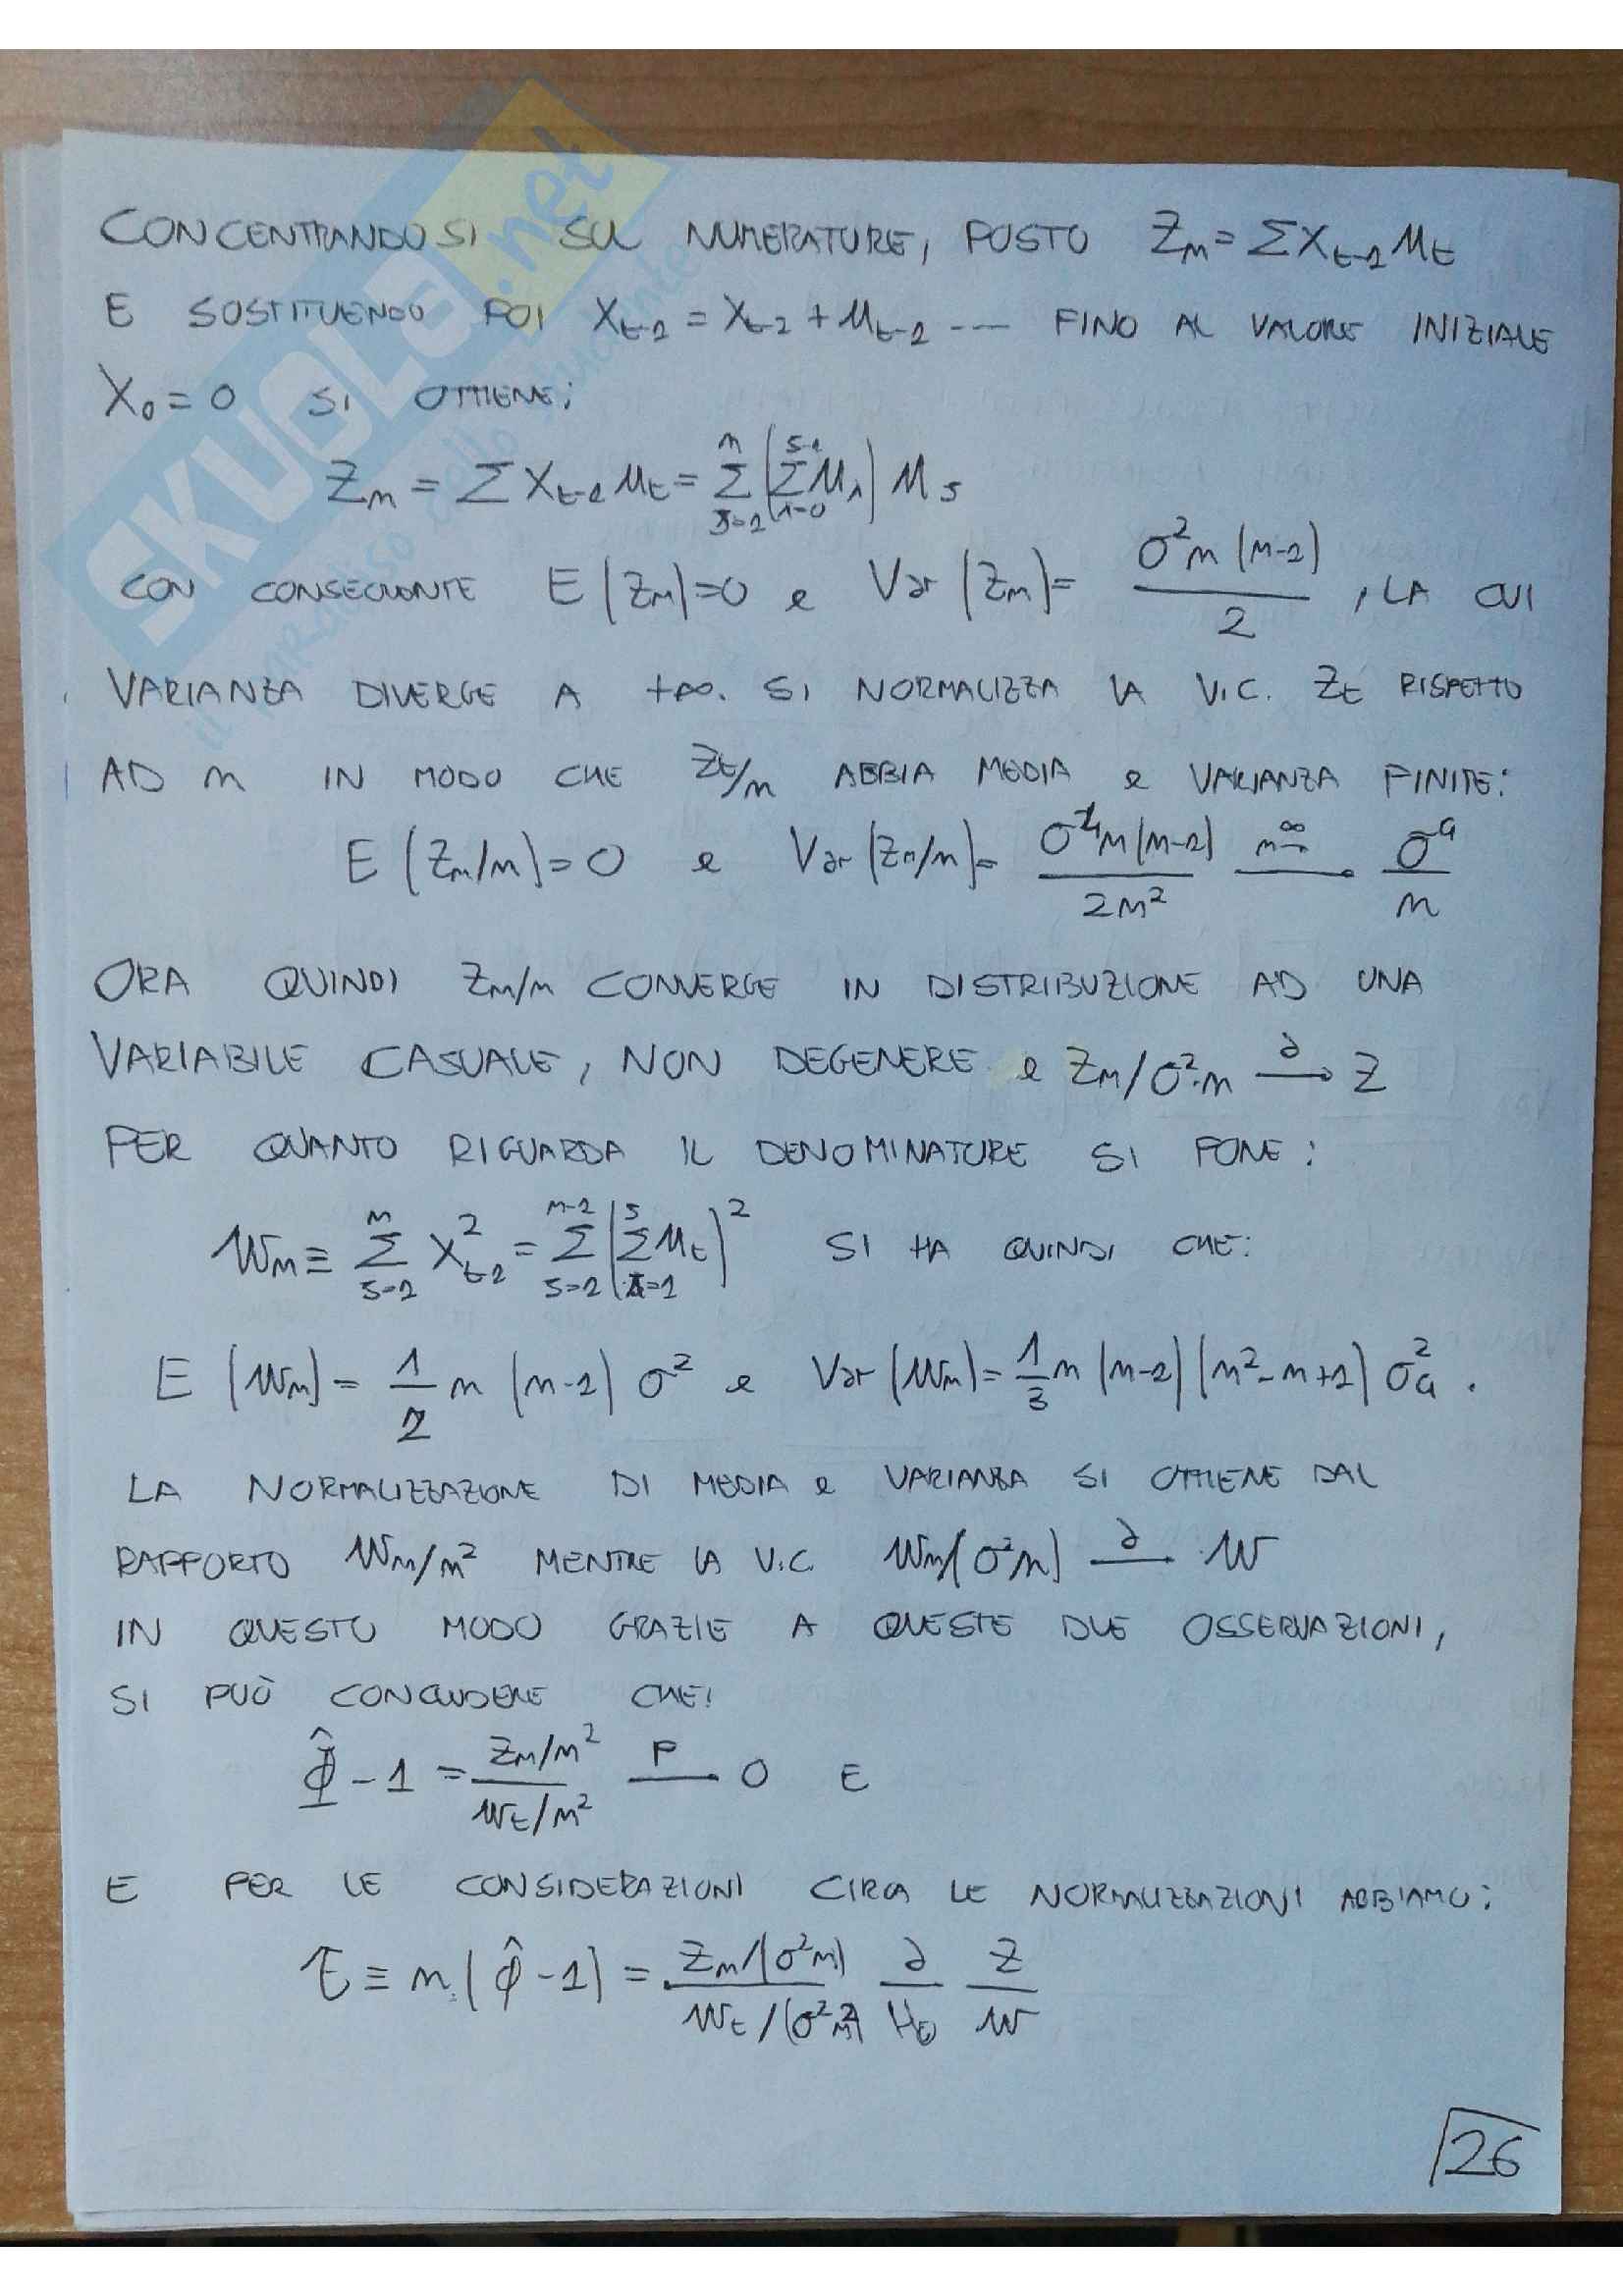 SKUOLa.net
il paradiso dello studente
CONCENTRANDOSI SUL NUMERATORE, POSTO Zn = ΣXt-1 Ut
E SOSTITUENDO POI Xt-1 = Xt-2 + Ut-1 --- FINO AL VALORE INIZIALE
X0 = 0 SI OTTIENE:
Zn = Σ Xt-1 Ut = Σ(s=1, n) (Σ(1=0, s-1) U1) Us
CON CONSEGUENTE E(Zn)=0 e Var(Zn)= σ²n(n-1)/2, LA CUI
VARIANZA DIVERGE A +∞. SI NORMALIZZA LA V.C. Zt RISPETTO
AD n IN MODO CHE Zt/n ABBIA MEDIA e VARIANZA FINITE:
E(Zn/n)=0 e Var(Zn/n)= σ⁴n(n-1)/2n² n→∞ σ⁴/n
ORA QUINDI Zn/n CONVERGE IN DISTRIBUZIONE AD UNA
VARIABILE CASUALE, NON DEGENERE e Zn/σ²·n →d Z
PER QUANTO RIGUARDA IL DENOMINATORE SI PONE:
Wn ≡ Σ(s=1, n) X²t-1 = Σ(s=1, n-1) (Σ(1=1, s) Ut)² SI HA QUINDI CHE:
E(Wn) = 1/2 n(n-1) σ² e Var(Wn) = 1/3 n(n-1)(n²-n+1) σ²a.
LA NORMALIZZAZIONE DI MEDIA e VARIANZA SI OTTIENE DAL
RAPPORTO Wn/n² MENTRE LA V.C. Wn/(σ²n) →d W
IN QUESTO MODO GRAZIE A QUESTE DUE OSSERVAZIONI,
SI PUÒ CONCLUDERE CHE:
Φ̂ - 1 = (Zn/n²)/(Wt/n²) →P 0 E
E PER LE CONSIDERAZIONI CIRCA LE NORMALIZZAZIONI ABBIAMO:
τ ≡ n(ϕ̂ - 1) = (Zn/(σ²n))/(Wt/(σ²n²)) d/H0 Z/W
26